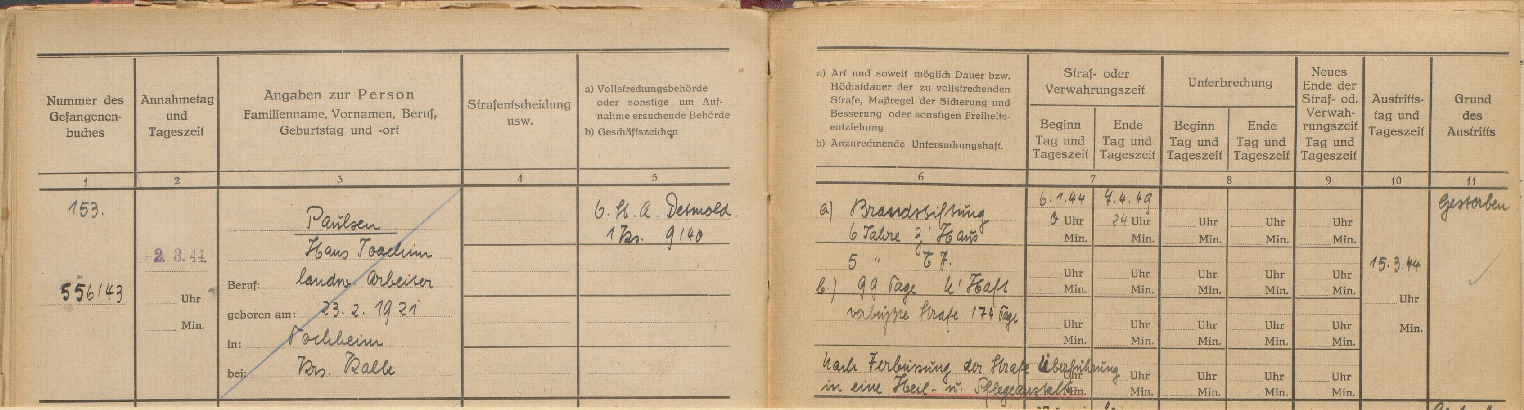 Nummer des
Gefangenen-
buches
Annahmetag
und
Tageszeit
Angaben zur Person
Familienname, Vornamen, Beruf,
Geburtstag und -ort
Strafentscheidung
usw.
a) Vollstreckungsbehörde
oder sonstige um Auf-
nahme ersuchende Behörde
b) Geschäftszeichen
1
2
3
4
5
153.
556/43
2. 3. 44.
Uhr
Min.
Paulsen
Hans Joachim
Beruf: landw. Arbeiter
geboren am: 23. 2. 1921
in:
bei: Krs. Kalbe
6. St. A. Detmold
1 Ks. 9/40
a) Art und soweit möglich Dauer bzw.
Höchstdauer der zu vollstreckenden
Strafe, Maßregel der Sicherung und
Besserung oder sonstigen Freiheits-
entziehung
b) Anzurechnende Untersuchungshaft.
Straf- oder
Verwahrungszeit
Beginn
Tag und
Tageszeit
Ende
Tag und
Tageszeit
Unterbrechung
Beginn
Tag und
Tageszeit
Ende
Tag und
Tageszeit
Neues
Ende der
Straf- od.
Verwah-
rungszeit
Tag und
Tageszeit
Austritts-
tag und
Tageszeit
Grund
des
Austritts
6
7
8
9
10
11
a) Brandstiftung
6 Jahre Z' Haus
5 "
b.) 99 Tage U' Haft
verbüßte Strafe 174 Tage
Nach Verbüsung der Strafe Überführung
in eine Heil- u. Pflegeanstalt.
6.1.44 7.4.49
Uhr 24 Uhr Uhr Uhr Uhr
Min. Min. Min. Min. Min.
Uhr Uhr Uhr Uhr Uhr
Min. Min. Min. Min. Min.
Uhr Uhr Uhr Uhr Uhr
Min. Min. Min. Min. Min.
Uhr Uhr Uhr Uhr Uhr
Min. Min. Min. Min. Min.
15.3.44
Uhr
Min.
Gestorben